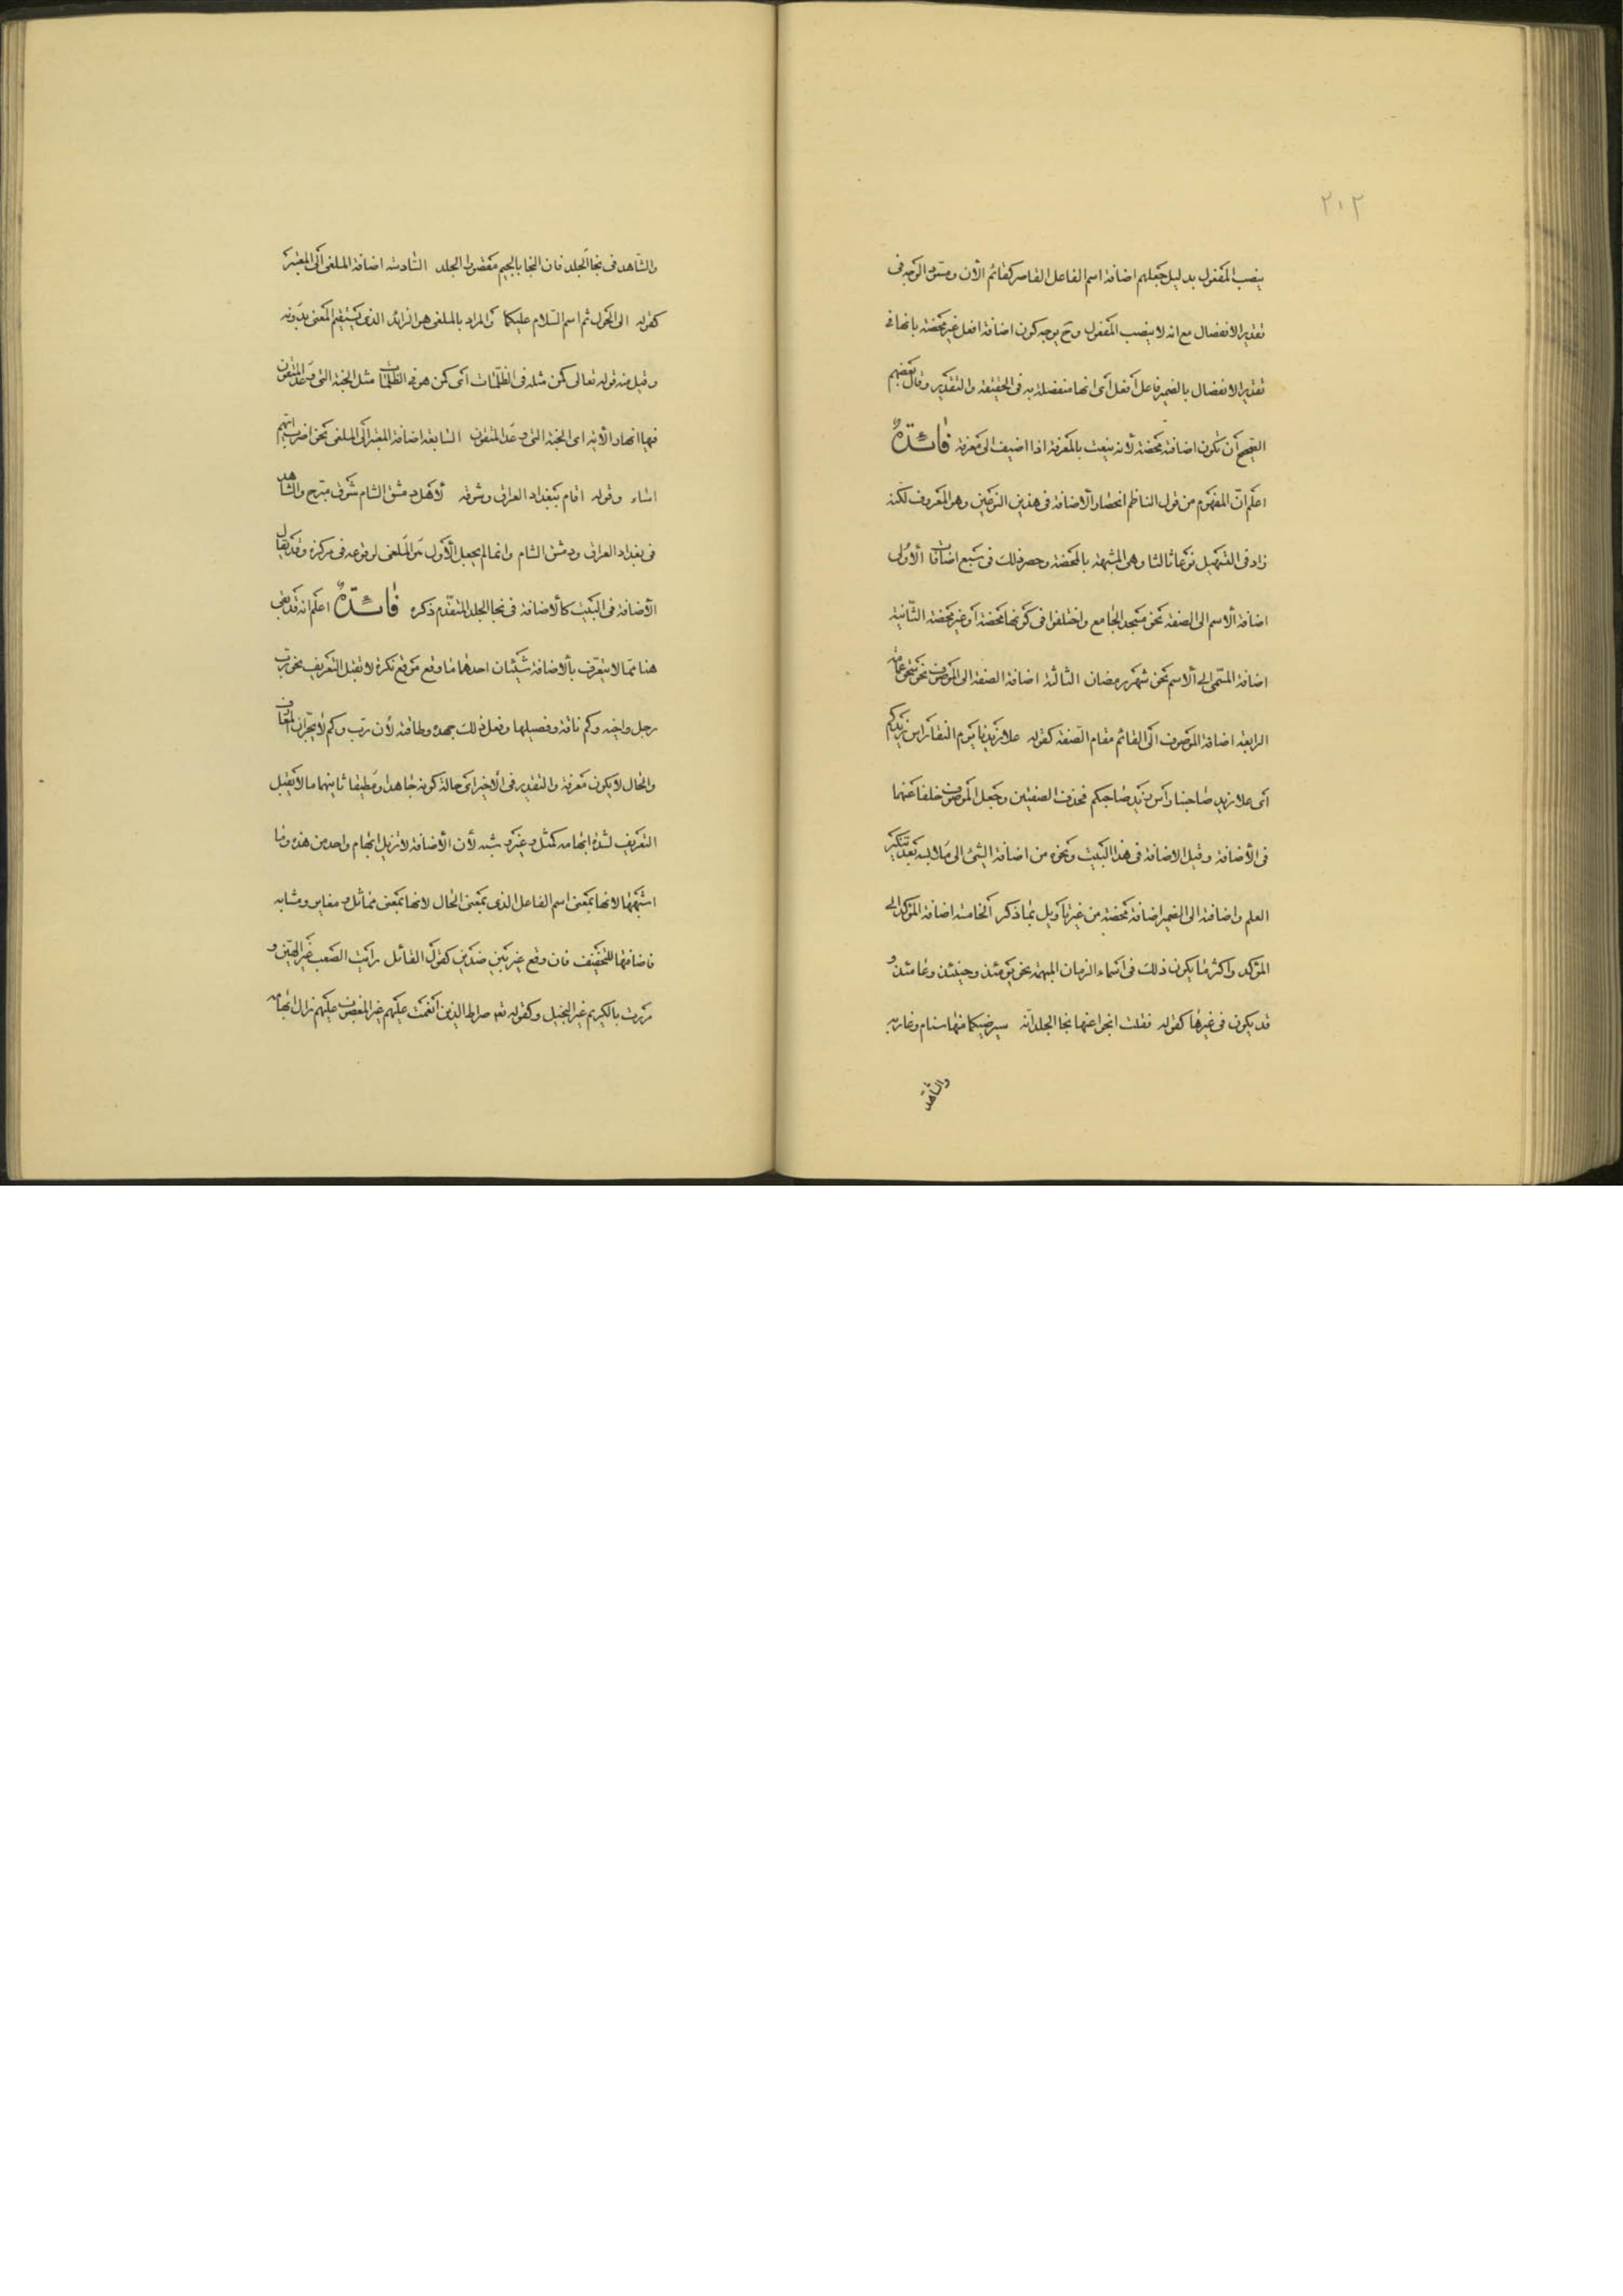 ٢٠٢
ينصب المفعول بدليل جعلهم اضافة اسم الفاعل القاصر كقائم الأن ومسود الوجه فى
تقدير الانفصال مع انه لا ينصب المفعول وح يوجه كون اضافة افعل غير محضة بانها فى
تقدير الانفصال بالضمير فاعل أفعل أى انها منفصلة به فى الحقيقة والتقدير وقال بعضهم
الصحيح أن تكون اضافة محضة لأنه ينعت بالمعرفة اذا اضيف الى معرفة فائدة
اعلم انّ المفهوم من قول الناظم انحصار ألاضافة فى هذين النوعين وهو المعروف لكنه
زاد فى التسهيل نوعا ثالثا وهى المشبهة بالمحضة وحصر ذلك فى سبع اضافات ألأولى
اضافة ألأسم الى الصفة نحو مسجد الجامع واختلفوا فى كونها محضة أو غير محضة الثّانية
اضافة المسّمى الى ألأسم نحو شهر رمضان الثالثة اضافة الصفة الى الموصوف نحو سحق عمامة
الرابعة اضافة الموصوف الى القائم مقام الصّفة كقوله علا زيدنا يوم النقا رأس زيدكم
أى علا زيد صاحبنا رأس زيد صاحبكم فحذف الصفتين وجعل الموصوف خلفا عنهما
فى الأضافة وقيل الاضافة فى هذا البيت ونحوه من اضافة الشئ الى ملابسه بعد تنكير
العلم واضافته الى الضمير اضافة محضة من غير تأويل بما ذكر الخامسة اضافة المؤكد الى
المؤكد واكثر ما يكون ذلك فى اسماء الزمان المبهمة نحو يومئذ وحينئذ وعامئذ و
قد يكون فى غيرها كقوله فقلت انجوا عنها نجا الجلد انّه سيرضيكما منها سنام وغاربه
والشاهد
والشّاهد فى نجا الجلد فان النجا بالجيم مقصورا الجلد السّادسة اضافة الملغى الى المعتبر
كقوله الى الحول ثم اسم السّلام عليكما والمراد بالملغى هو الزائد الذى يستقيم المعنى بدونه
وقيل منه قوله تعالى كمن مثله فى الظلّمات أى كمن هو فى الظلمات مثل الجنة التى وعد المتقون
فيها انهار الأية اى الجنة التى وعد المتقون السّابعة اضافة المعتبر الى الملغى نحو اضرب ايّهم
اساء وقوله اقام ببغداد العراق وشوقه لأهل دمشق الشام شوق مبرّح والشاهد
فى بغداد العراق ودمشق الشام وانما لم يجعل الأول هو الملغى لوقوعه فى مركزه وقد يقال
الأضافة فى البيت كألاضافة فى نجا الجلد المتقدّم ذكره فائدّة اعلم انه قد بقى
هنا ممّا لا يتعرّف بألاضافة شيئان احدهما ما وقع موقع نكرة لا تقبل التعريف نحو ربّ
رجل واخيه وكم ناقة وفصيلها وفعل ذلك جهده وطاقته لأن ربّ وكم لا يجّران المعارف
والحال لا يكون معرفة والتقدير فى الأخير اى حالة كونه جاهدا ومطيقا ثانيهما ما لا يقبل
التعريف لشدة ابهامه كمثل وغير وشبه لأن ألأضافة لا تزيل ابهام واحد من هذه وما
اشبهها لانها بمعنى اسم الفاعل الذى بمعنى الحال لانها بمعنى مماثل ومغاير ومشابه
فاضافتها للتخفيف فان وقع غير بين ضدين كقول القائل رأيت الصّعب غير الهيّن و
مررت بالكريم غير البخيل وكقوله تعا صراط الذين أنعمت عليهم غير المغضوب عليهم زال ابهامه